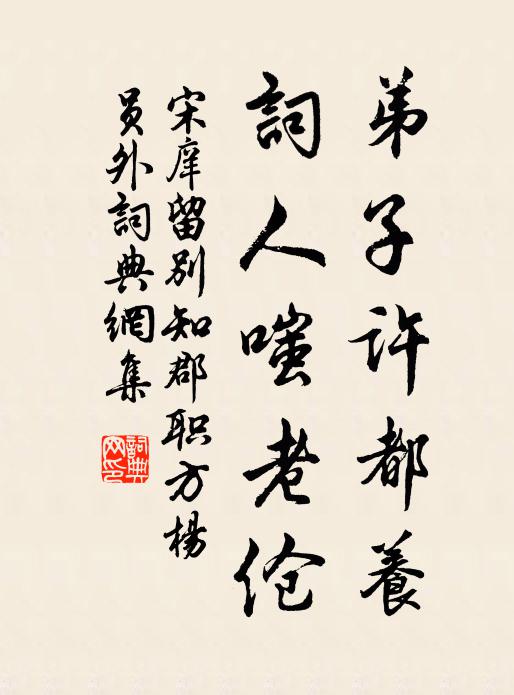 弟子许都養
詞人嗤老伧
宋庠留别知郡职方楊
员外詞典網集
詞典网印